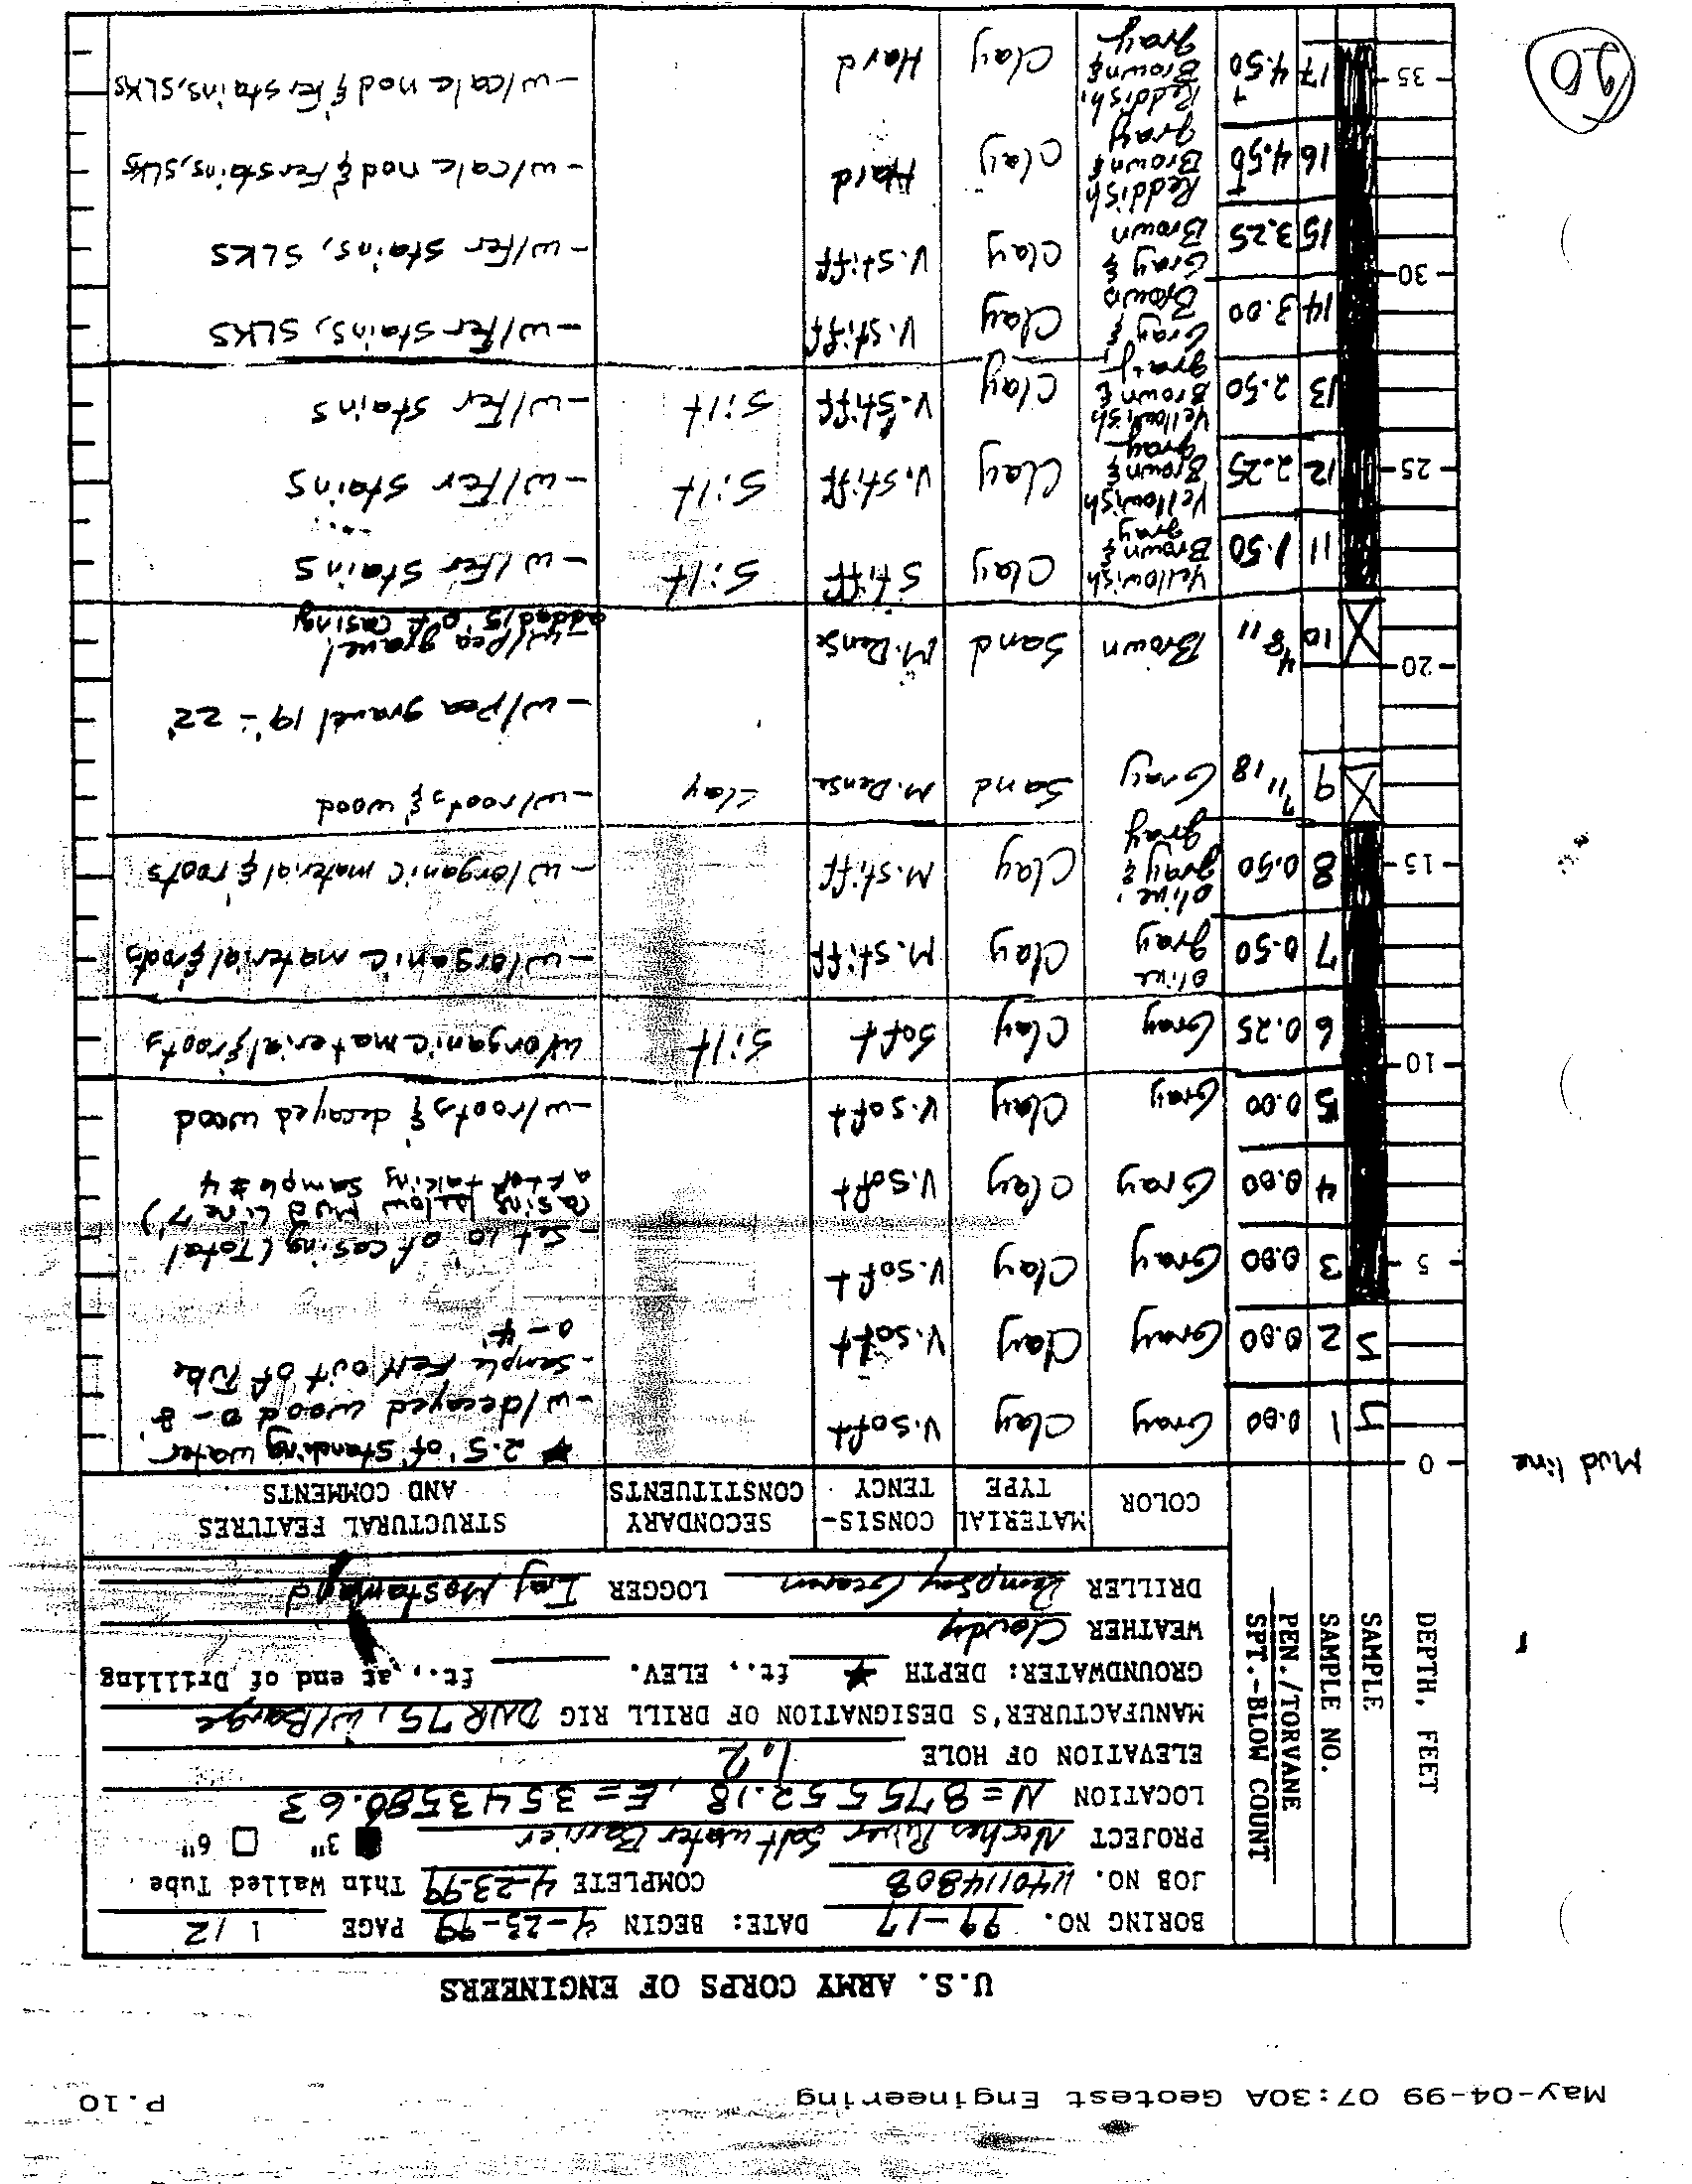 May-04-99 07:30A Geotest Engineering P.10
U.S. ARMY CORPS OF ENGINEERS
BORING NO. 99-17 DATE: BEGIN 4-23-99 PAGE 1/2
JOB NO. 1140114808 COMPLETE 4-23-99 Thin Walled Tube
PROJECT Neches River Saltwater Barrier 3" 6"
LOCATION N=875552.18, E=3543580.63
ELEVATION OF HOLE 1.2
MANUFACTURER'S DESIGNATION OF DRILL RIG 75, w/Barge
GROUNDWATER: DEPTH * ft., ELEV. ft., at end of Drilling
WEATHER Cloudy
DRILLER Dempsey LOGGER
DEPTH, FEET
SAMPLE
SAMPLE NO.
PEN./TORVANE
SPT.-BLOW COUNT
COLOR
MATERIAL TYPE
CONSIS-TENCY
SECONDARY CONSTITUENTS
STRUCTURAL FEATURES AND COMMENTS
Mud line
0
* 2.5' of standing water
J 1 0.00 Gray Clay V.Soft -w/decayed wood 0-8'
-sample Fell out of Tube
0-4'
J 2 0.00 Gray Clay V.Soft
5 3 0.00 Gray Clay V.Soft -Set 10' of casing (Total
casing below Mud Line 7')
after taking sample #4
4 0.00 Gray Clay V.Soft
5 0.00 Gray Clay V.Soft -w/roots & decayed wood
10
6 0.25 Gray Clay Soft Silt w/organic material & roots
7 0.50 olive gray Clay M.Stiff -w/organic material & roots
15 8 0.50 olive gray & gray Clay M.Stiff -w/organic material & roots
9 7 11 18 Gray Sand M.Dense Clay -w/roots & wood
-w/pea gravel 19'-22'
20
10 4 8 11 Brown Sand M.Dense -w/pea gravel
added 5' of casing
11 1.50 Yellowish Brown & gray Clay Stiff Silt -w/fer stains
25 12 2.25 Yellowish Brown & gray Clay V.Stiff Silt -w/fer stains
13 2.50 Yellowish Brown & gray Clay V.Stiff Silt -w/fer stains
14 3.00 Gray & Brown Clay V.Stiff -w/fer stains, SLKS
30
15 3.25 Gray & Brown Clay V.Stiff -w/fer stains, SLKS
16 4.50+ Reddish Brown & gray Clay Hard -w/calc nod & fer stains, SLKS
35 17 4.50+ Reddish Brown & gray Clay Hard -w/calc nod & fer stains, SLKS